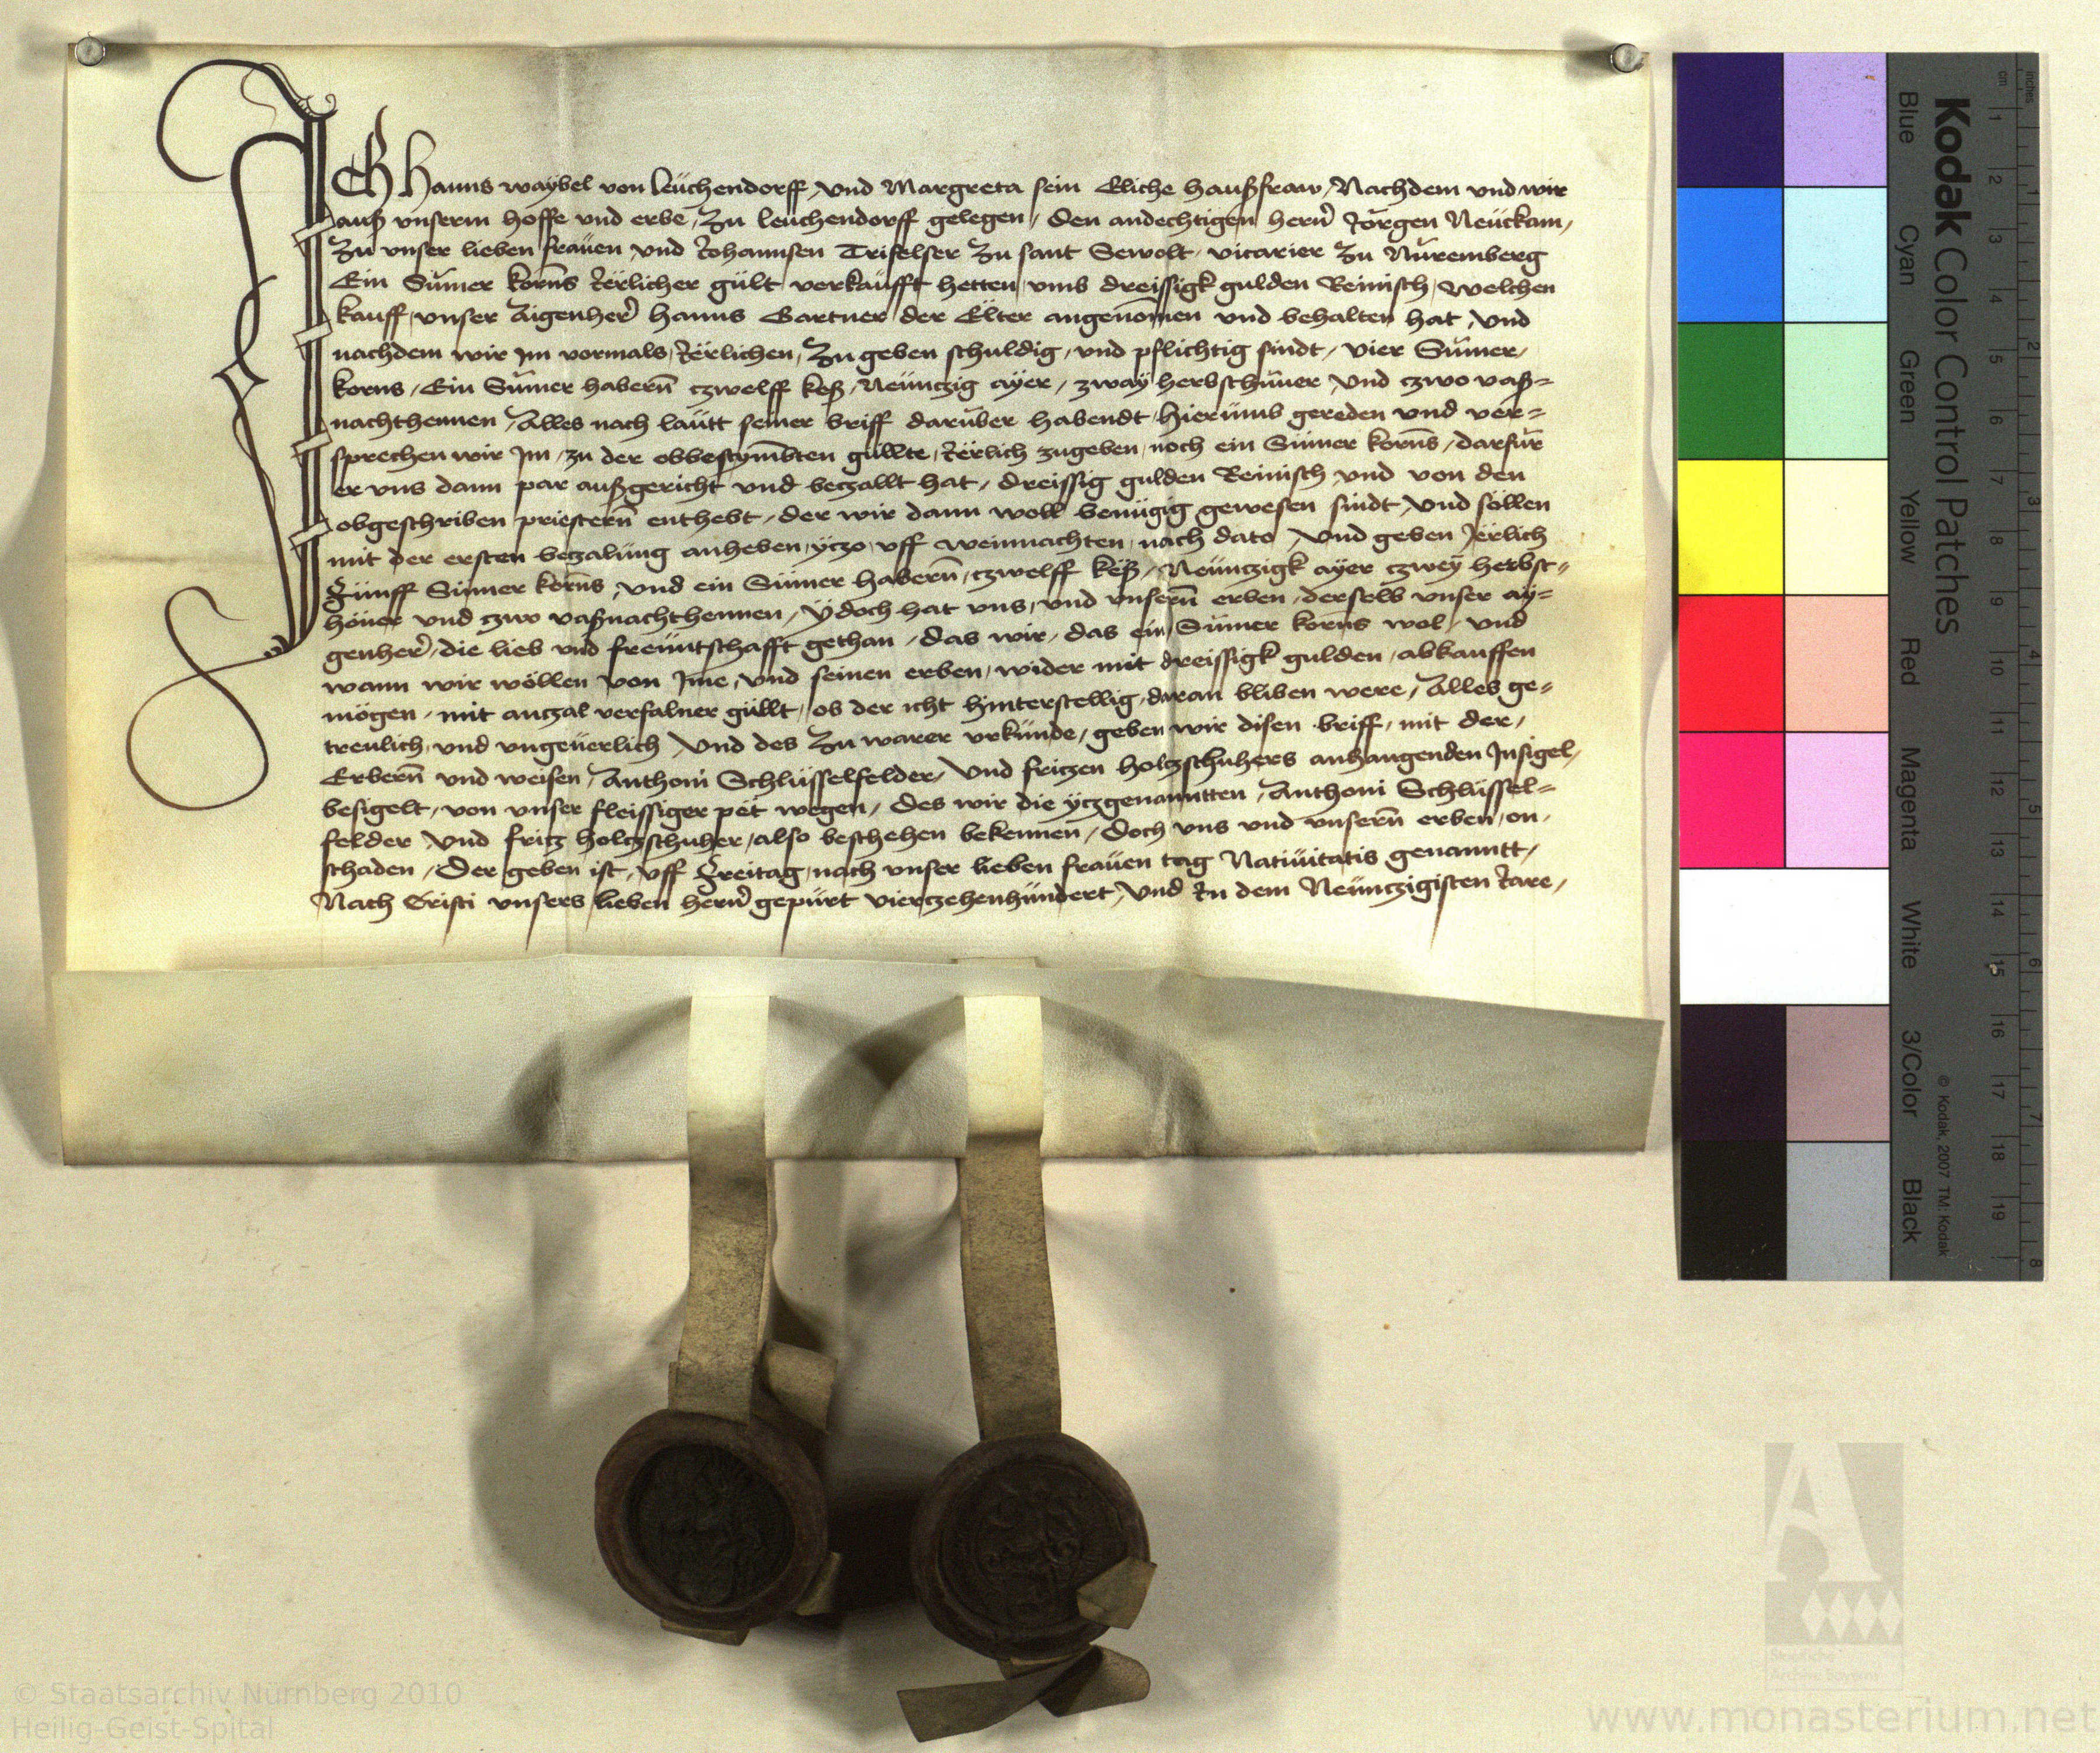 ICh Hanns waybel von Leüchendorff, vnd Margreta sein Eliche haußfraw, Nachdem vnd wir
auß vnserm hoffe vnd erbe, Zu leuchendorff gelegen, den andechtigen hern Jörgen Neückam,
Zu vnser lieben fraüen vnd Johannsen Trifelser Zu sant Sewolt, vicarier Zu Nüremberg
Ein Sümer korns Jerlicher gült verkaüfft hetten, vmb dreissigk gulden Reinisch, welchen
kauff, vnser Aigenher hanns Gartner der Elter angenomen vnd behalten hat, vnd
nachdem wir jm vormals, Jerlichen, Zu geben schuldig, vnd pflichtig sindt, vier Sümer,
korns, Ein Sümer habern czwelff keß, Neünczig ayer, zway herbsthüner vnd czwo vaß=
nachthennen, Alles nach laütt seiner briff darüber habendt, hierümb gereden vnd ver=
sprechen wir Jm, zu der obbestymbten güllte, Jerlich zugeben, noch ein Sümer korns, darfür
er vns dann par außgericht vnd beczallt hat, dreissig gulden Reinisch vnd von den
obgeschriben priestern enthebt, der wir dann woll benügig gewesen sindt, vnd söllen
mit der ersten beczalüng anheben, yczo, vff weinnachten, nach dato, vnd geben Jerlich
Fünff Sümer korns, vnd ein Sümer habern, czwelff keß, Neünczigk ayer czwey herbst=
höner vnd czwo vaßnachthennen, ydoch hat vns, vnd vnsern erben, derselb vnser ay=
genher, die lieb vnd freüntschafft gethan, das wir, das ein Sümer korns wol, vnd
wann wir wöllen von Jme, vnd seinen erben, wider mit dreissigk gulden, abkauffen
mögen, mit anczal verfalner güllt, ob der icht hinterstellig, daran bliben were, Alles ge=
treulich, vnd vngeüerlich vnd des Zu warer vrkünde, geben wir disen briff, mit der,
Erbern vnd weisen, Anthoni Schlüsselfelder, vnd friczen holczschuhers anhangenden Jnsigel,
besigelt, von vnser fleissiger pet wegen, des wir die yczgenanntten, Anthoni Schlüssel=
felder vnd fricz holczschuher, also beschehen bekennen, doch vns vnd vnsern erben, on,
schaden, Der geben ist, vff Freitag, nach vnser lieben fraüen tag Natiüitatis genanntt,
Nach Cristi vnsers lieben hern gepürt vierczehenhündert, vnd Jn dem Neünczigisten Jare,
Kodak Color Control Patches
Blue Cyan Green Yellow Red Magenta White 3/Color Black
© Kodak, 2007 TM: Kodak
inches 1 2 3 4 5 6 7 8
cm 1 2 3 4 5 6 7 8 9 10 11 12 13 14 15 16 17 18 19
© Staatsarchiv Nürnberg 2010
Heilig-Geist-Spital
www.monasterium.net